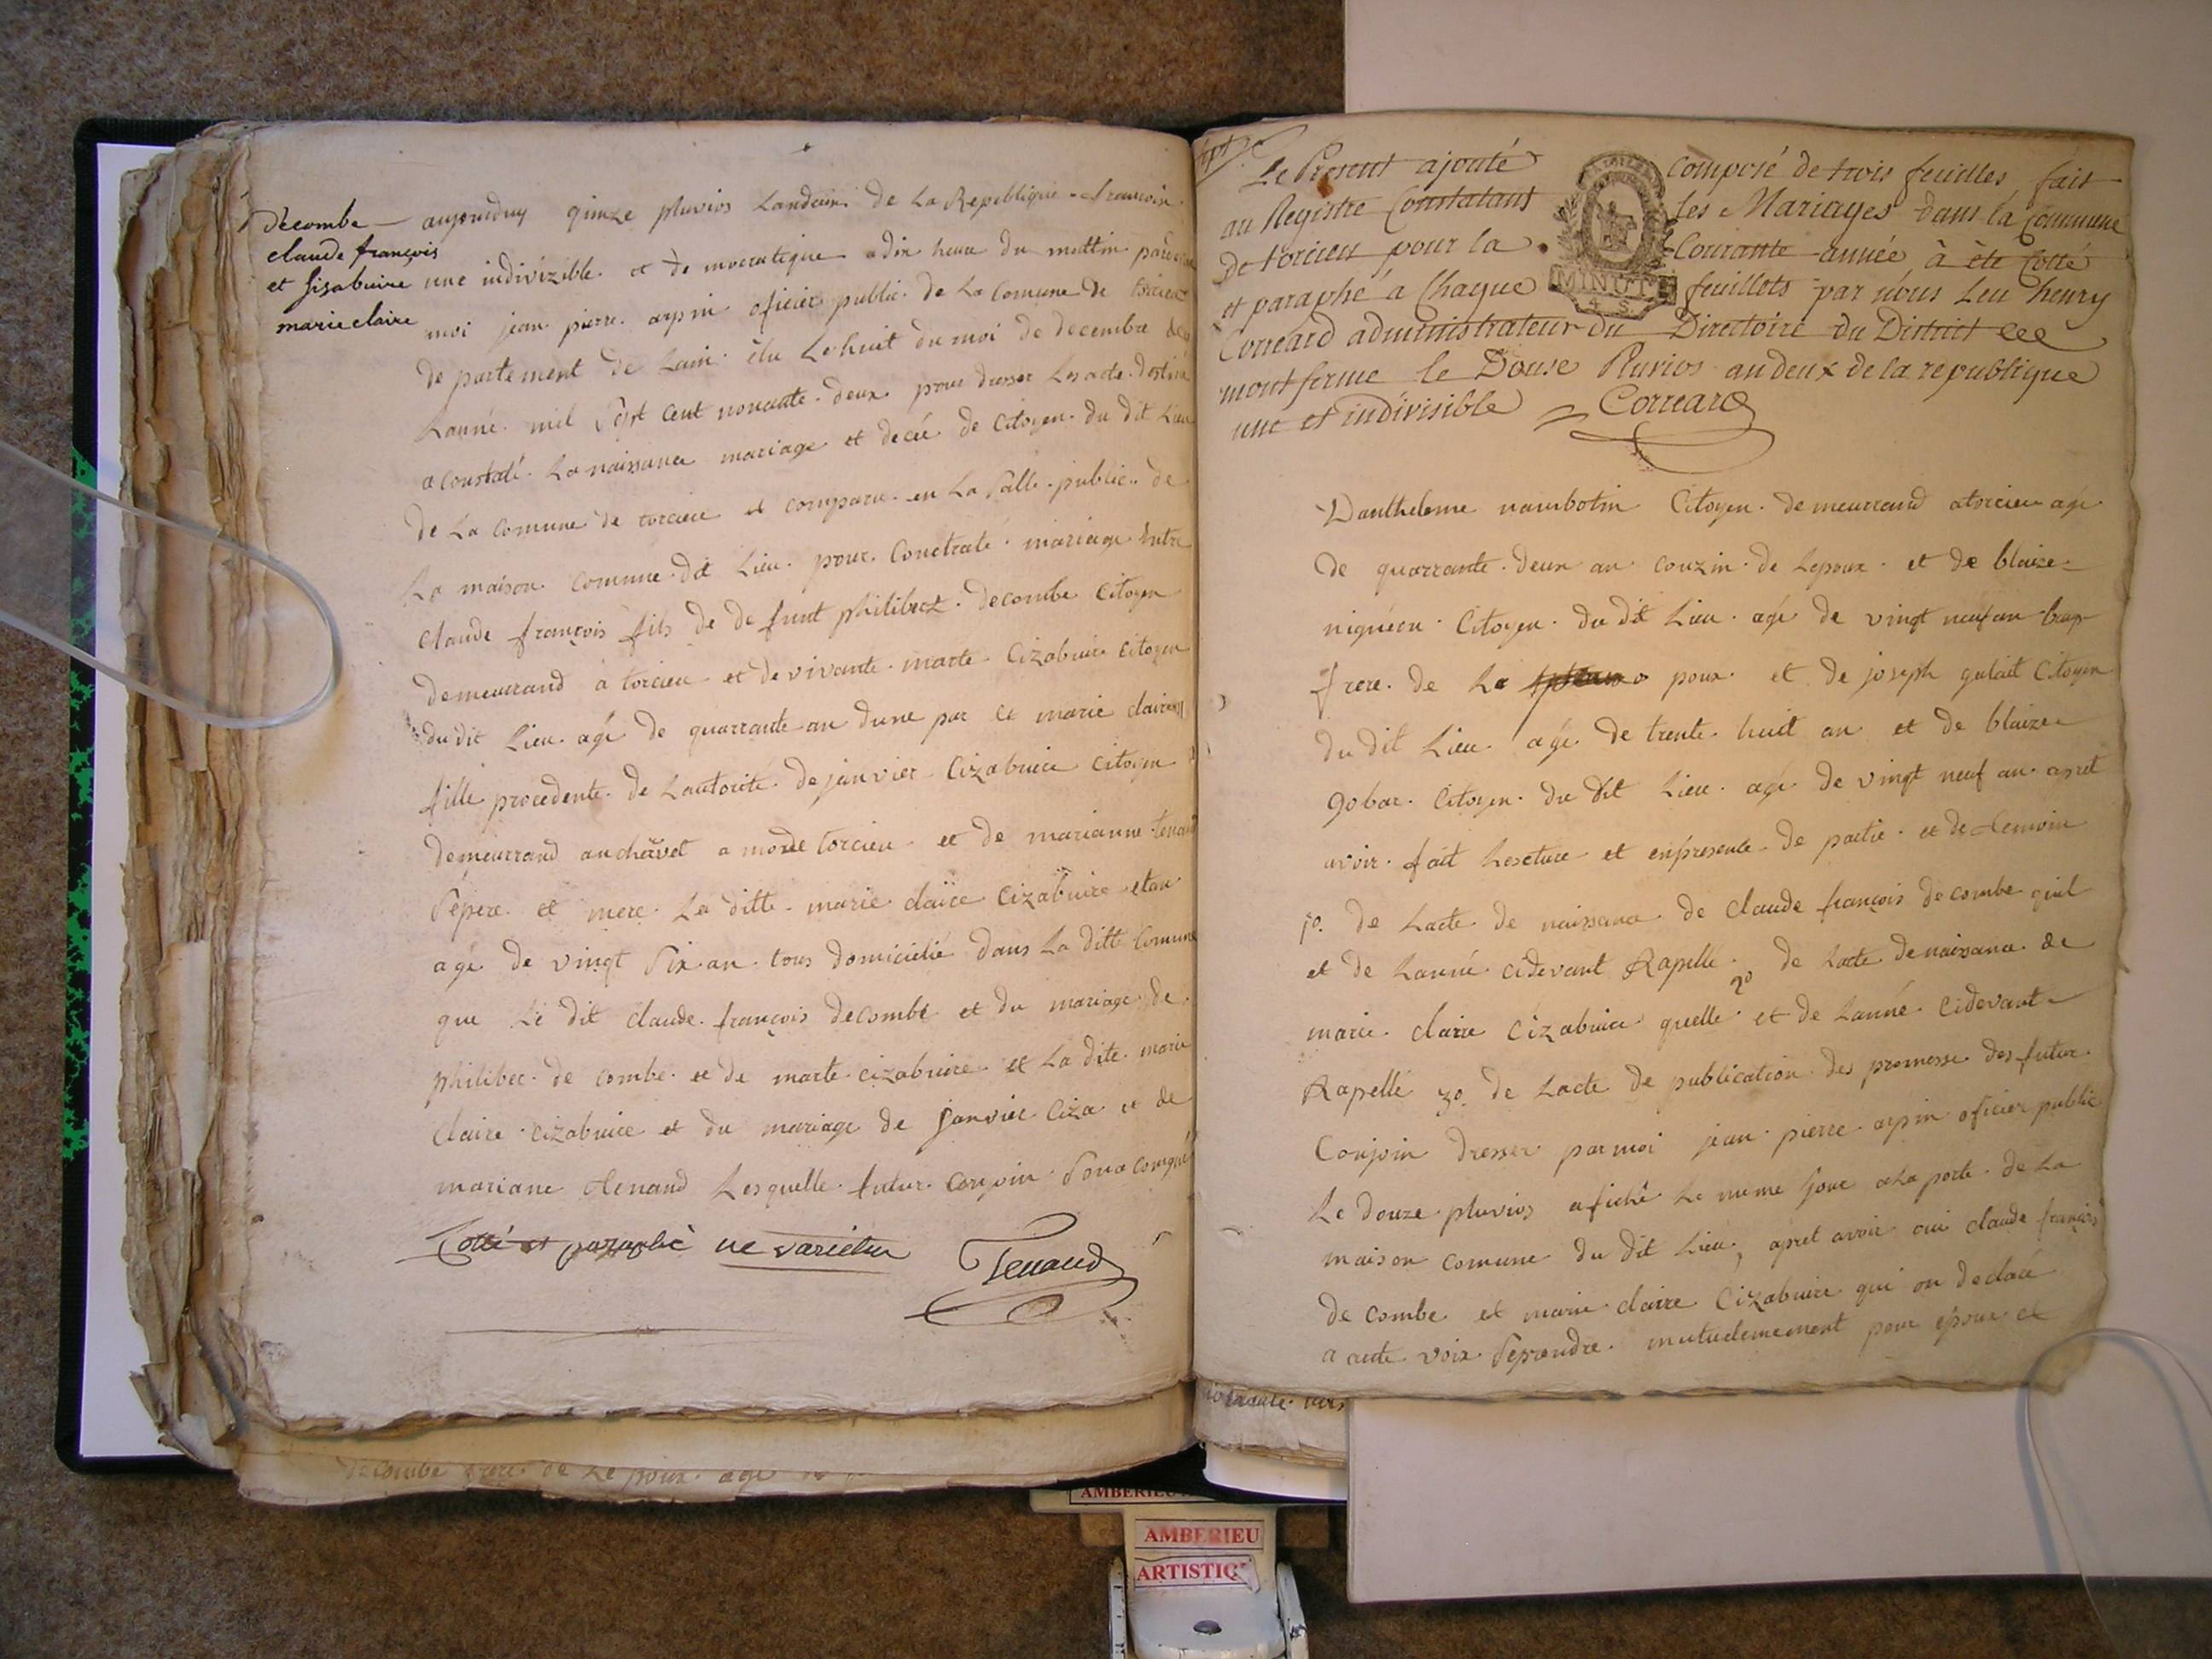 decombe
claude françois
et sisabuire
marie claire
aujourduy quinze pluvios landeux de la Republique francoise
une indivizible et de mocratique a dix heure du mattin pardevan
moi jean pierre arpin oficier public de la comune de torcieu
de partement de lain élu le huit du moi de decembre de
lanné mil sept cent nonante deux pour dresser les acte destiné
a constaté la naissance mariage et decé de citoyen du dit lieu
de la comune de torcieu et comparu en la salle public de
la maison comune dit lieu pour contrate mariage entre
claude françois fils de de funt philibert decombe citoyen
demeurand à torcieu et de vivante marte cizabuire citoyen
du dit lieu agé de quarrante an dune par et marie claire
fille procedente de lautorité de janvier cizabuire citoyen
demeurrand au chavet a monde torcieu et de marianne tenand
sepere et mere la ditte marie claire cizabuire etan
agé de vingt six an tous domicielié dans la ditte comune
que le dit claude françois decombe et du mariage de
philiber de combe et de marte cizabuire et la dite marie
claire cizabuire et du mariage de janvier ciza et de
mariane tenand lesquelle futur conjoin son a compagné
Cotté et paraphé ne varietur Tenand
decombe frere de le poux agé
Le Present ajouté composé de trois feuilles fait
au Registre Constatant les Mariages dans la Commune
de torcieu pour la Courante année à été Cotté
et paraphé à Chaque feuillets par nous Leu henry
MINUTE
Correard administrateur du Directoire du District de
montferme le Douse Pluvios an deux de la republique
une et indivisible Correard
Dantheleme nambotin Citoyen demeurrand a torcieu agé
de quarrante deux an couzin de lepoux et de blaize
niguéen Citoyen du dit lieu agé de vingt neuf an beau
frere de le poux et de joseph gulait Citoyen
du dit lieu agé de trente huit an et de blaize
gobar Citoyen du dit lieu agé de vingt neuf an apret
avoir fait lescture et enpresence de partie et de temoin
1o. de lacte de naissance de claude françois decombe quil
et de lanné cidevant Rapelle 2o de lacte de naissance de
marie claire cizabuire quelle et de lanné cidevant
Rapellé 3o de lacte de publication des promesse des futur
Conjoin dresser par moi jean pierre arpin oficier public
le douze pluvios afiché le meme jour a la porte de la
maison comune du dit lieu, apret avoir oui claude françois
de combe et marie claire cizabuire qui on declaré
a aute voix seprendre mutuelemement pour epoux et
AMBERIEU
AMBERIEU
ARTISTIQ